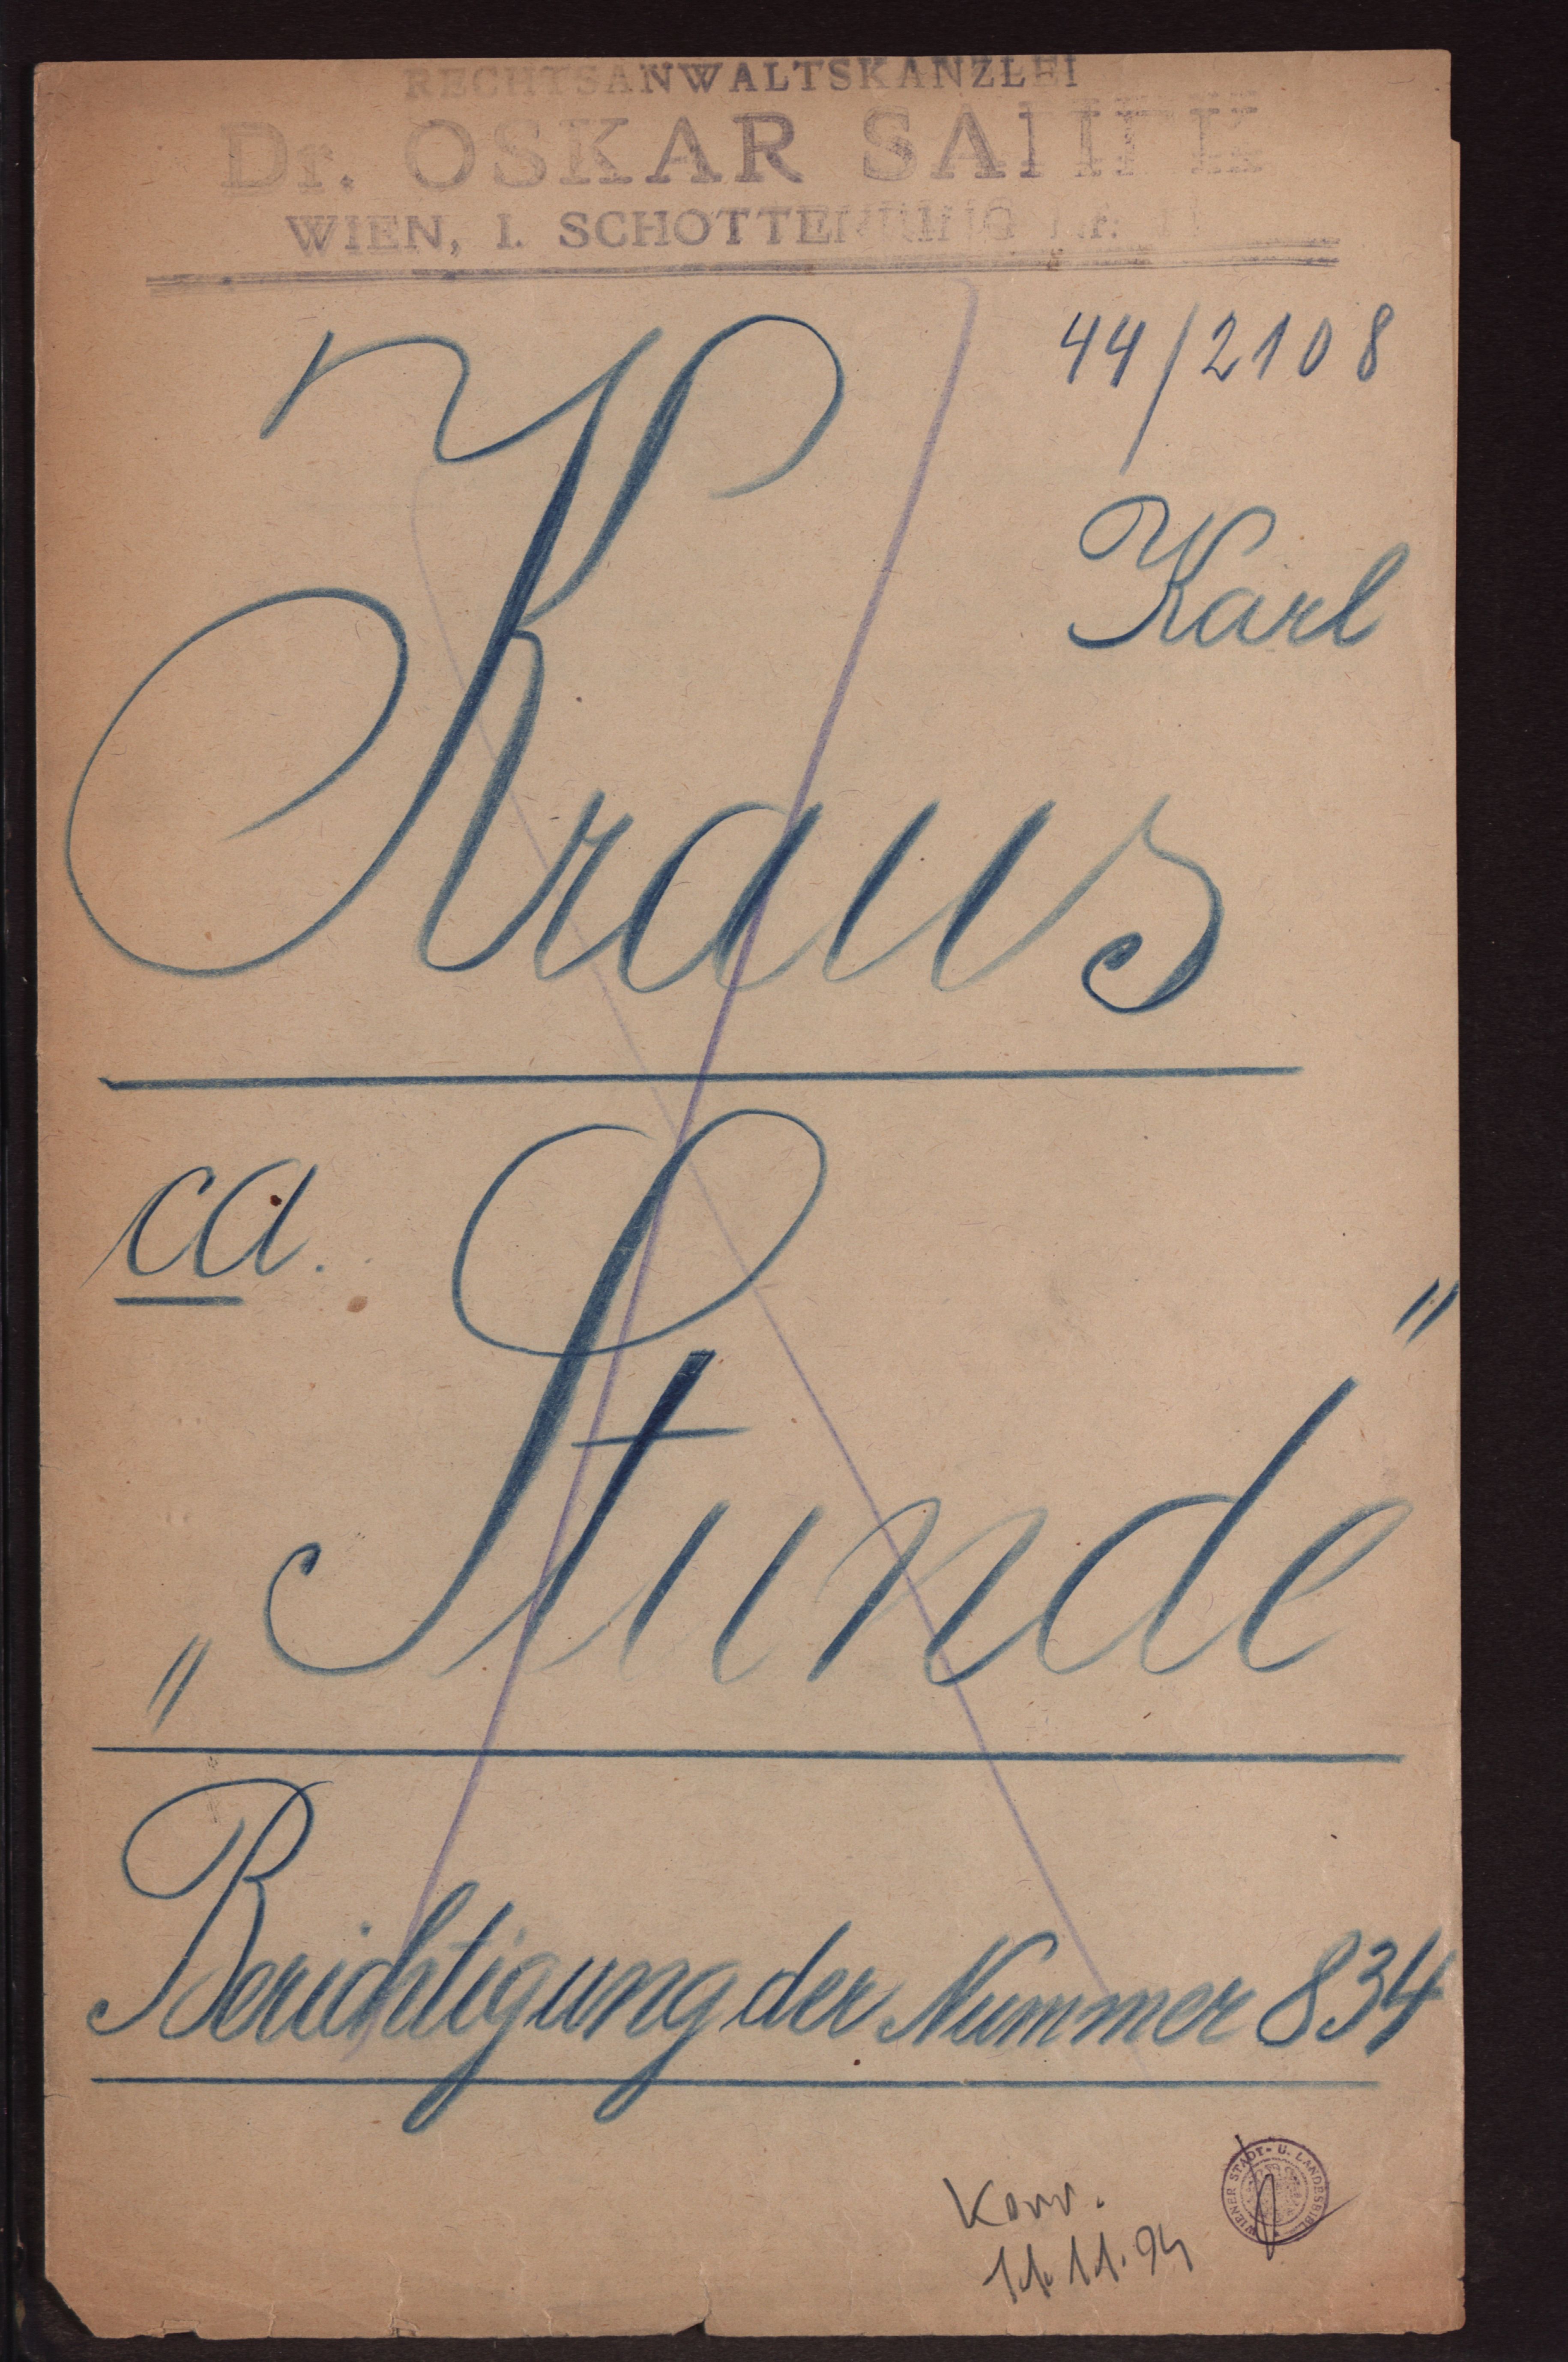 RECHTSANWALTSKANZLEI
Dr. OSKAR
WIEN, I. SCHOTTENRING Nr.
44/2108
Karl
Kraus
ca.
„Stunde"
Berichtigung der Nummer 834
Korr.
11.11.94
WIENER STADT- U. LANDESBIBL.